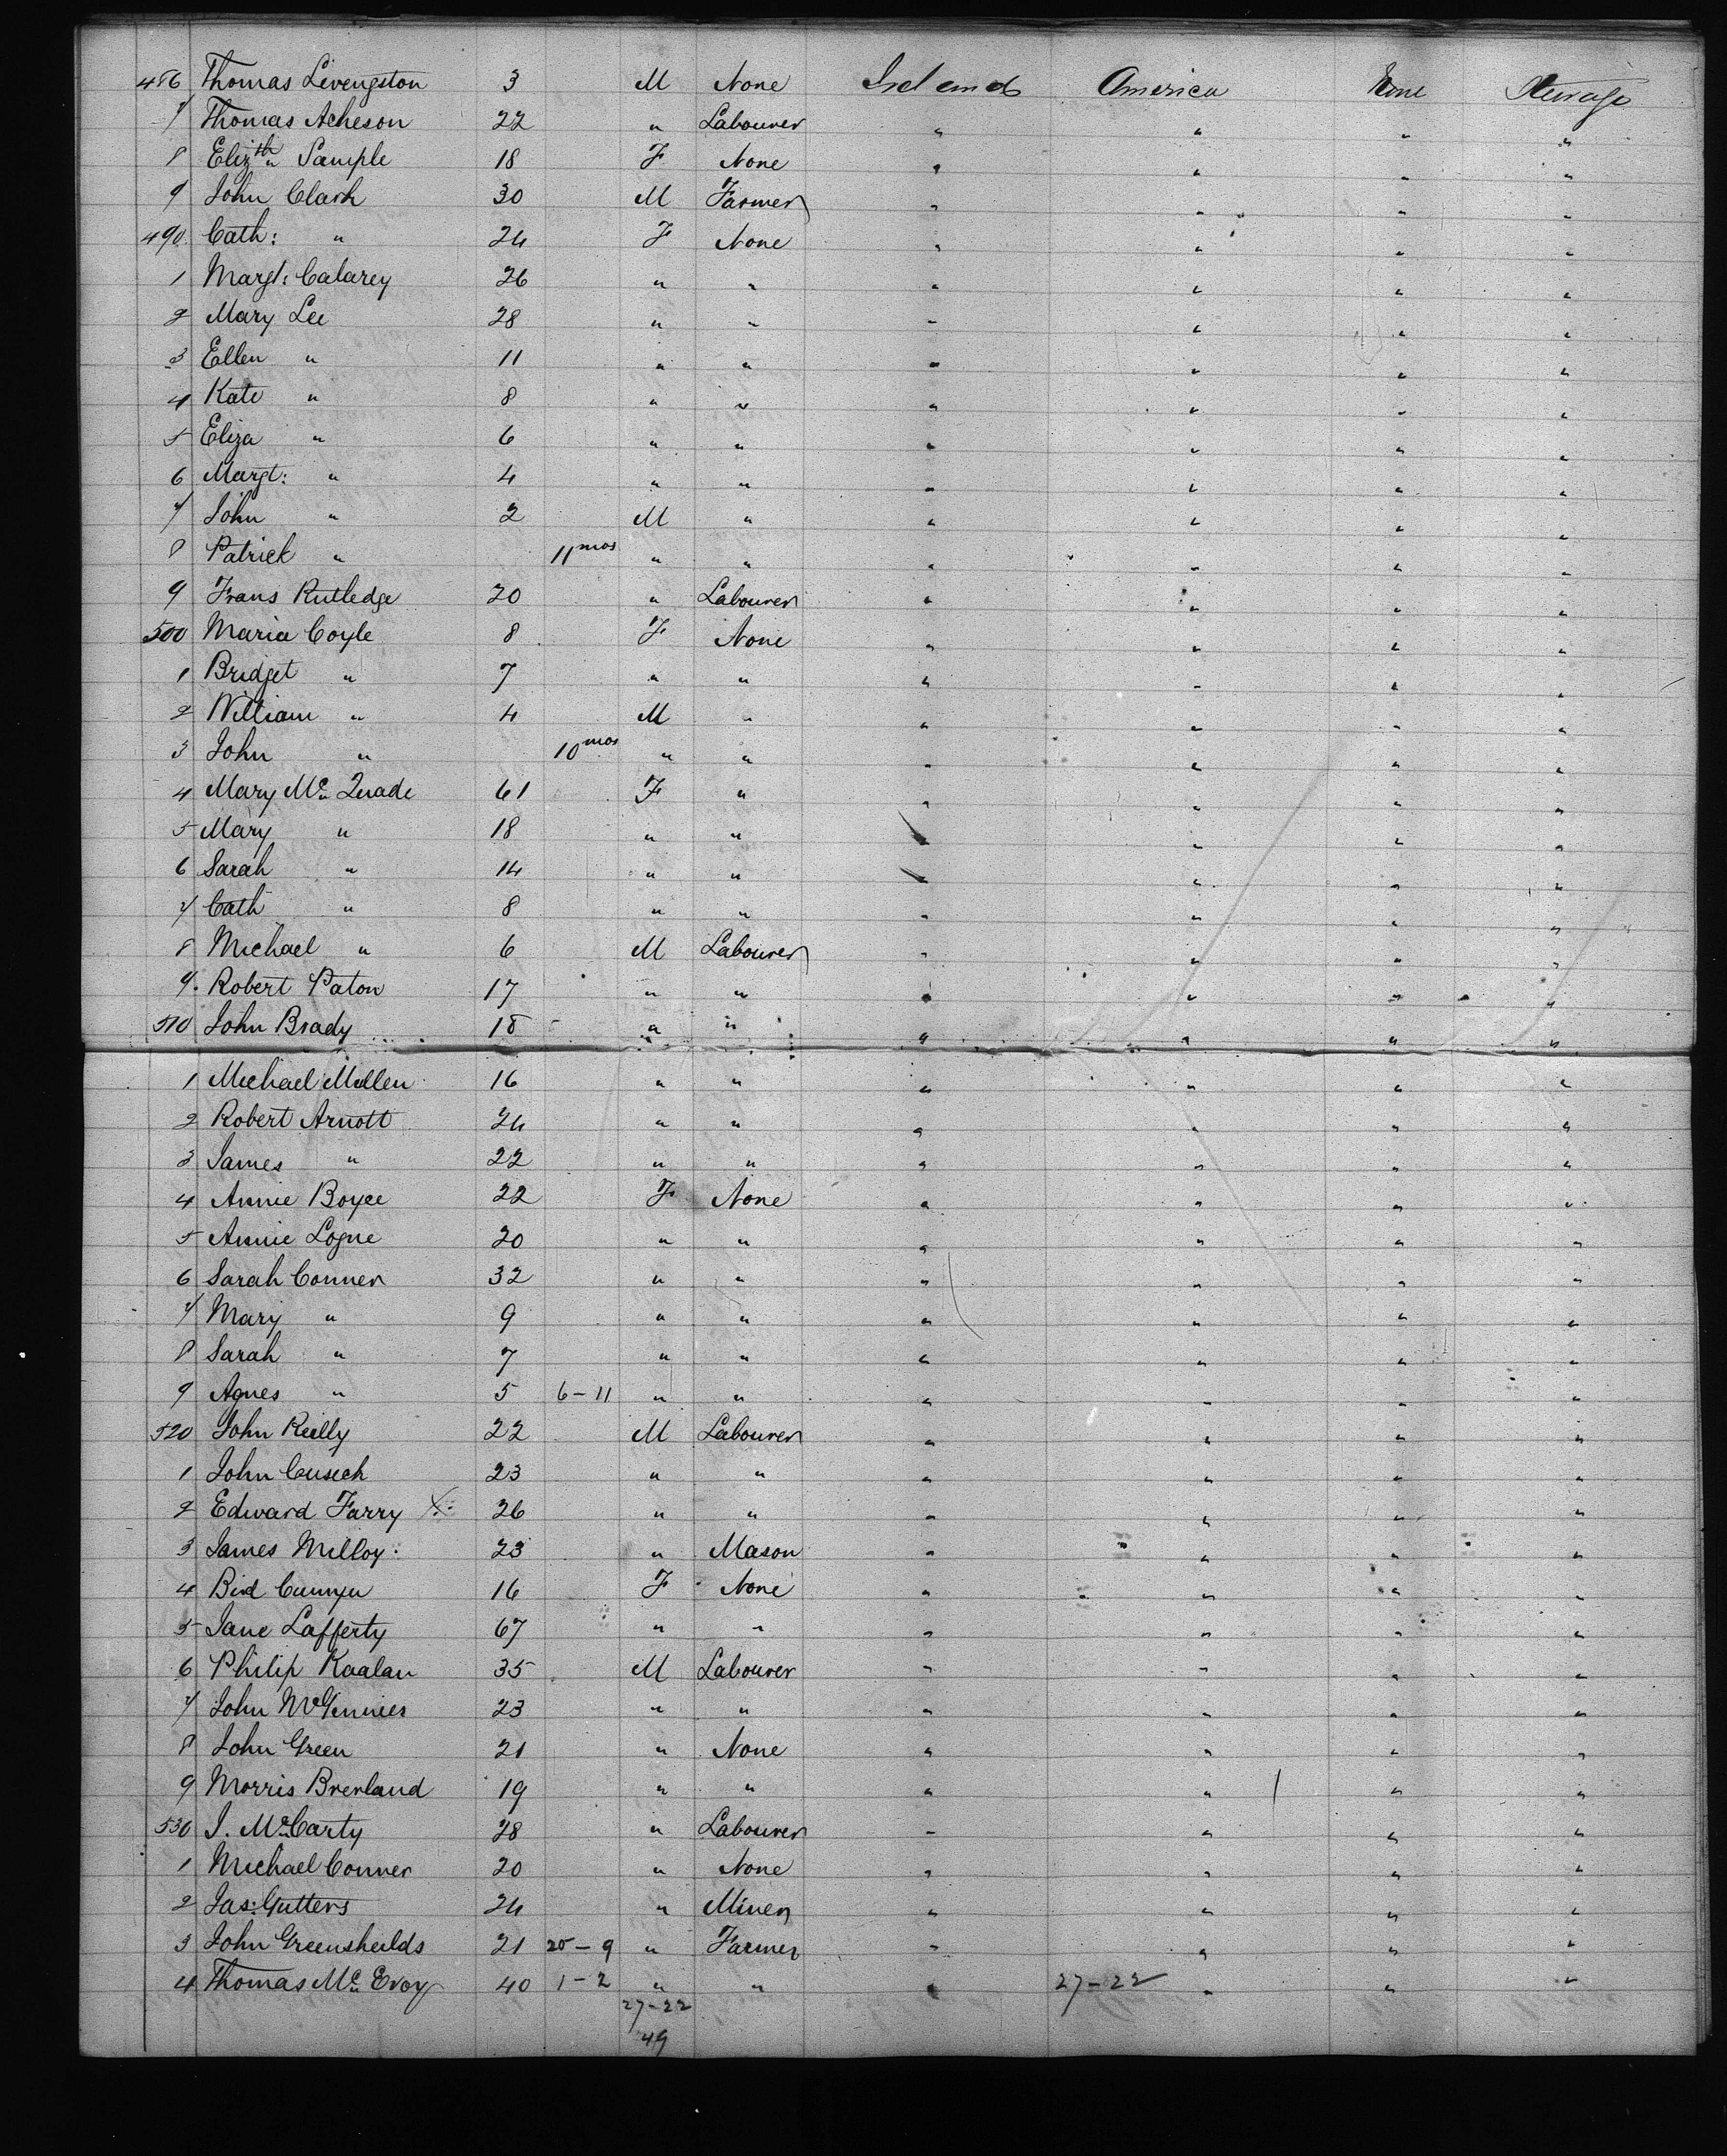 486 Thomas Livengston 3 M None Ireland America None Steerage
7 Thomas Acheson 22 " Labourer " " " "
8 Elizth Sample 18 F None " " " "
9 John Clark 30 M Farmer " " " "
490 Cath: " 24 F None " " " "
1 Margt: Calarey 26 " " " " " "
2 Mary Lee 28 " " " " " "
3 Ellen " 11 " " " " " "
4 Kate " 8 " " " " " "
5 Eliza " 6 " " " " " "
6 Margt: " 4 " " " " " "
7 John " 2 M " " " " "
8 Patrick " 11 mos " " " " " "
9 Frans Rutledge 20 " Labourer " " " "
500 Maria Coyle 8 F None " " " "
1 Bridget " 7 " " " " " "
2 William " 4 M " " " " "
3 John " 10 mos " " " " " "
4 Mary Mc Quade 61 F " " " " "
5 Mary " 18 " " " " " "
6 Sarah " 14 " " " " " "
7 Cath " 8 " " " " " "
8 Michael " 6 M Labourer " " " "
9 Robert Paton 17 " " " " " "
510 John Brady 18 " " " " " "
1 Michael Mullen 16 " " " " " "
2 Robert Arnott 24 " " " " " "
3 James " 22 " " " " " "
4 Annie Boyce 22 F None " " " "
5 Annie Logue 20 " " " " " "
6 Sarah Conner 32 " " " " " "
7 Mary " 9 " " " " " "
8 Sarah " 7 " " " " " "
9 Agnes " 5 6-11 " " " " " "
520 John Reilly 22 M Labourer " " " "
1 John Cusech 23 " " " " " "
2 Edward Farry X 26 " " " " " "
3 James Milloy 23 " Mason " " " "
4 Bid 16 F None " " " "
5 Jane Lafferty 67 " " " " " "
6 Philip Kaalan 35 M Labourer " " " "
7 John McGinnies 23 " " " " " "
8 John Green 21 " None " " " "
9 Morris Brerland 19 " " " " " "
530 J. McCarty 28 " Labourer " " " "
1 Michael Conner 20 " None " " " "
2 Jas: Gutters 24 " Miner " " " "
3 John Greensheilds 21 25-9 " Farmer " " " "
4 Thomas Mc Evoy 40 1-2 " " " 27-22 " " "
27-22
49